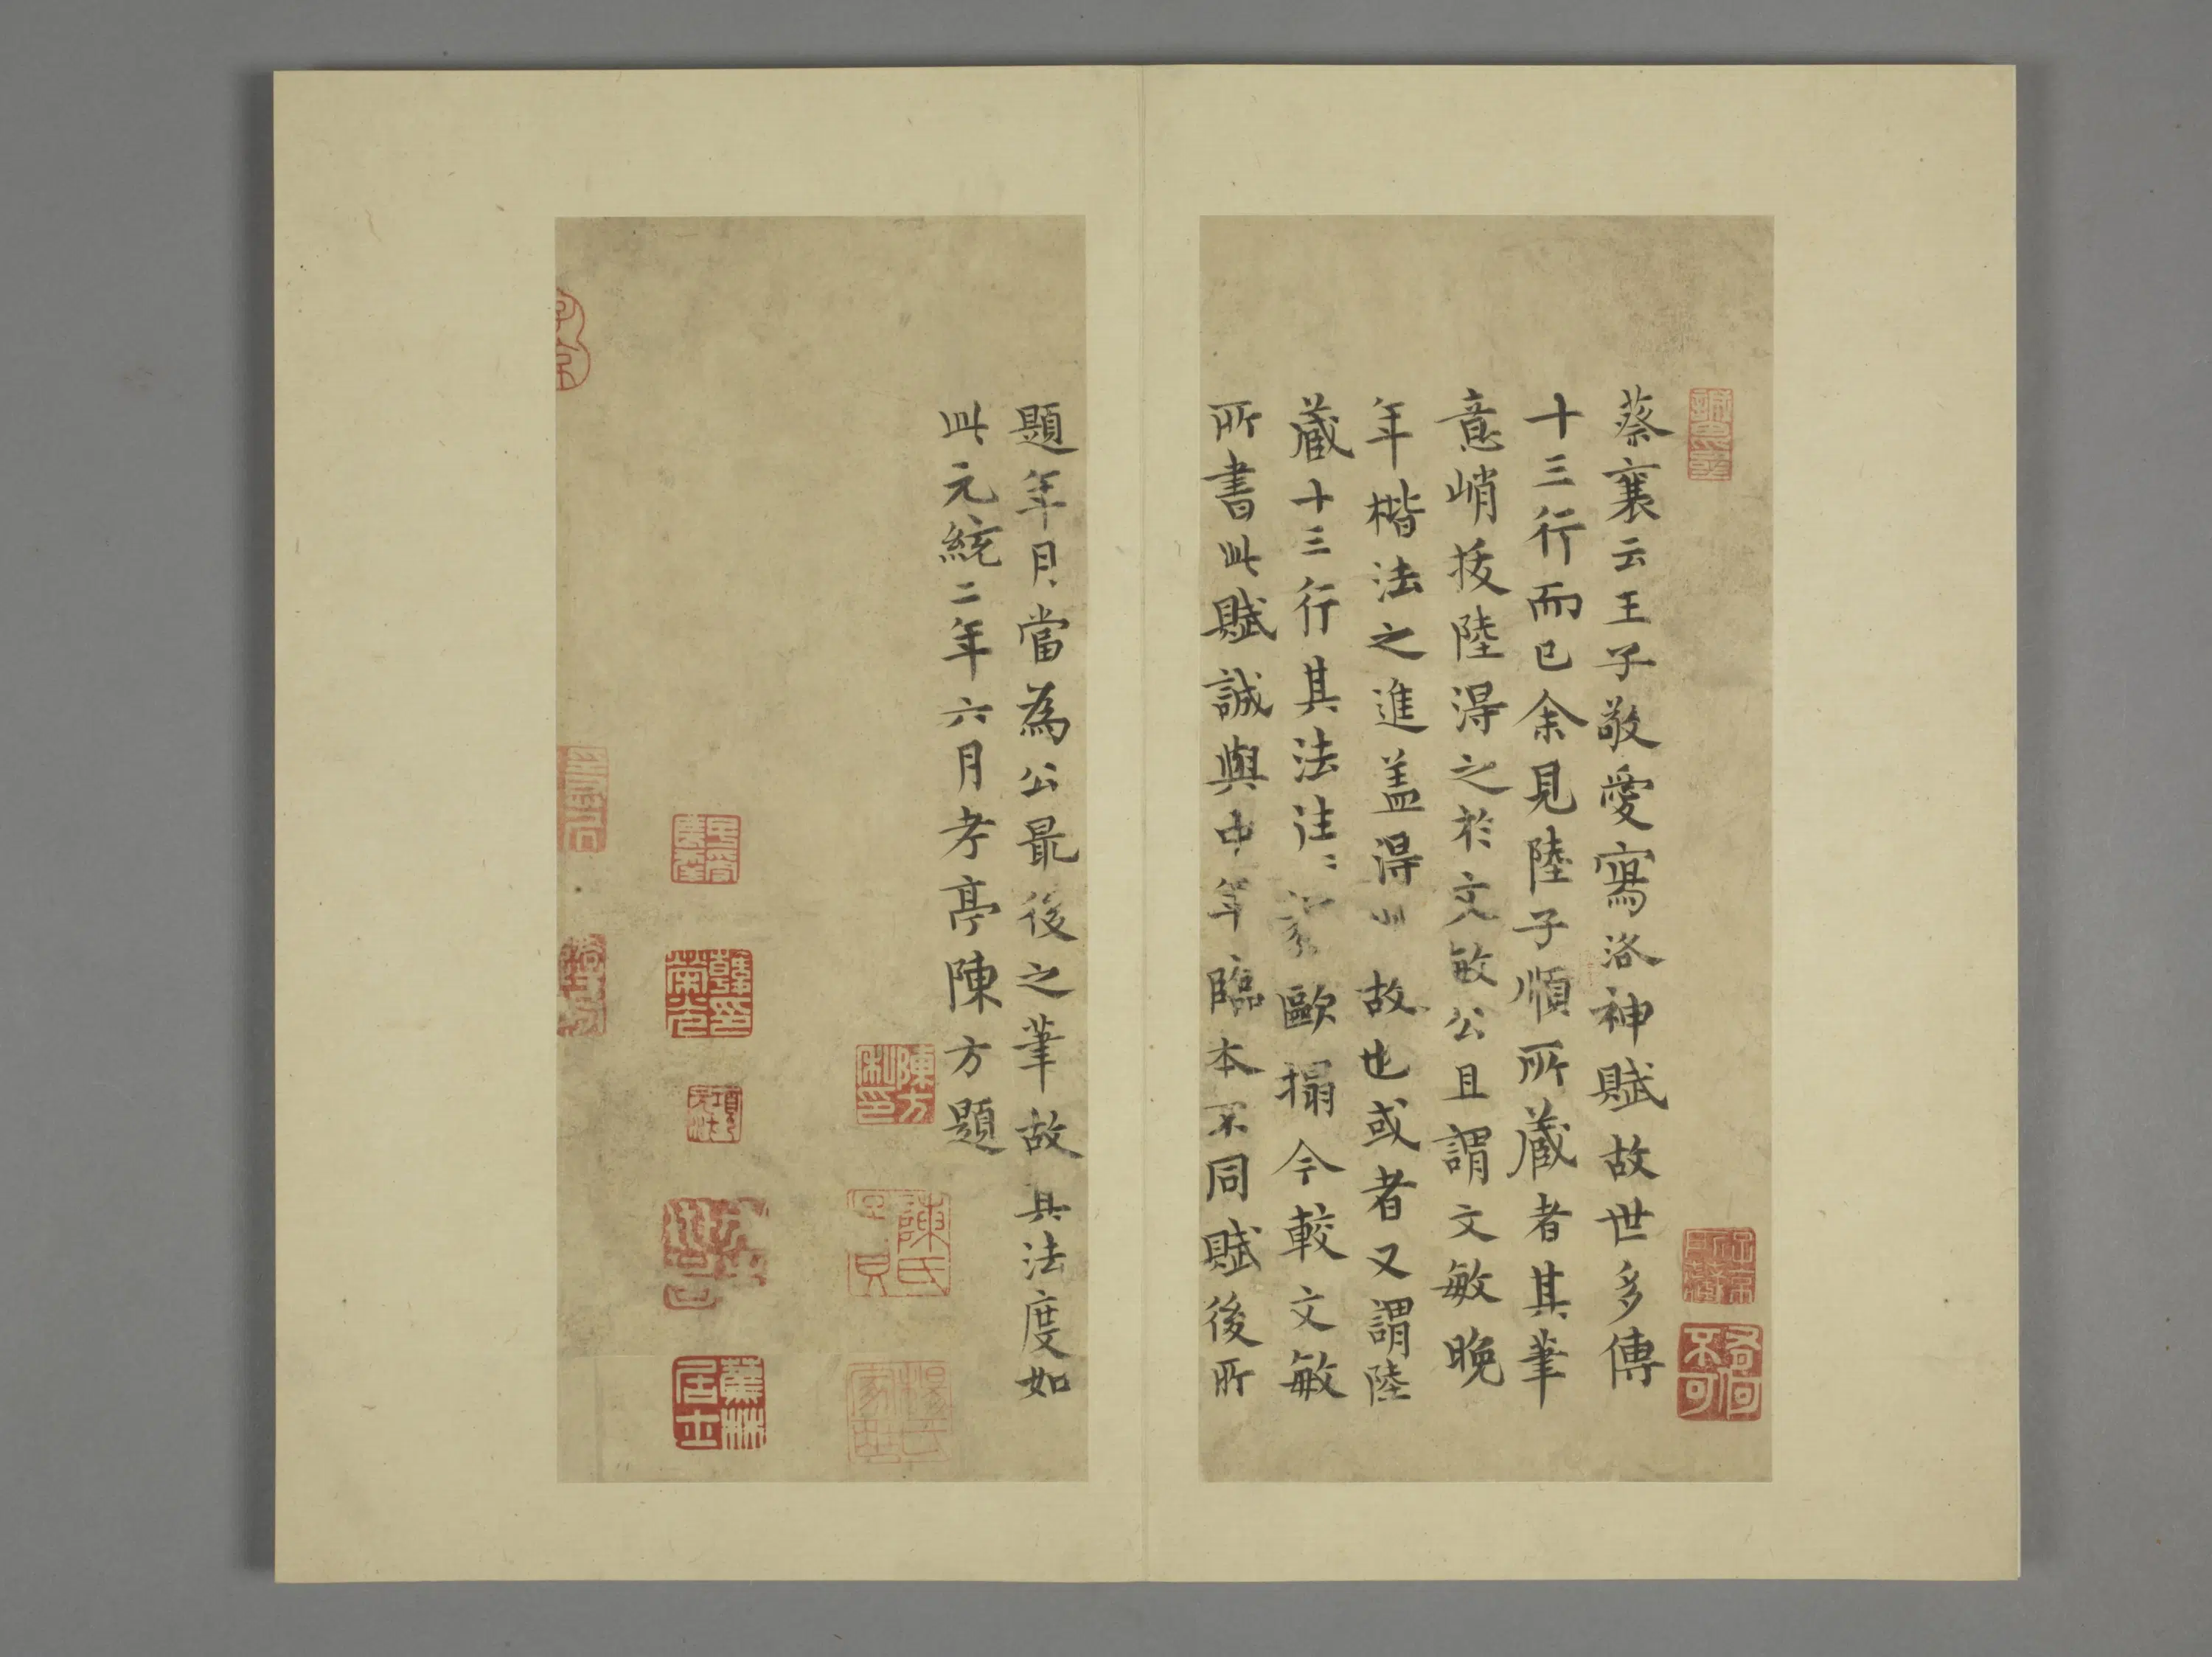 蔡襄云王子敬愛寫洛神賦故世多傳
十三行而已余見陸子順所藏者其筆
意峭拔陸得之於文敏公且謂文敏晚
年楷法之進蓋得此故也或者又謂陸
藏十三行其法往〻歐搨今較文敏
所書此賦誠與中年臨本不同賦後所
題年月當為公最後之筆故其法度如
此元統二年六月孝亭陳方題
陳方私印
陳氏
楊氏
韓印
蕉林居士
若何不可